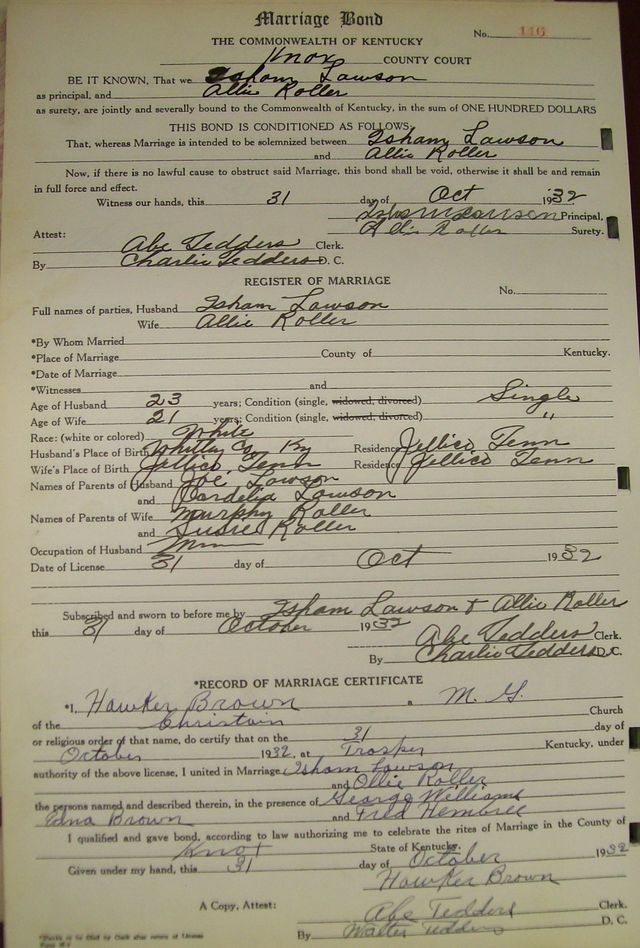 Marriage Bond
No. 116
THE COMMONWEALTH OF KENTUCKY
Knox COUNTY COURT
BE IT KNOWN, That we Isham Lawson
as principal, and Allie Roller
as surety, are jointly and severally bound to the Commonwealth of Kentucky, in the sum of ONE HUNDRED DOLLARS
THIS BOND IS CONDITIONED AS FOLLOWS:
That, whereas Marriage is intended to be solemnized between Isham Lawson
and Allie Roller
Now, if there is no lawful cause to obstruct said Marriage, this bond shall be void, otherwise it shall be and remain
in full force and effect.
Witness our hands, this 31 day of Oct 1932
Isham Lawson Principal,
Allie Roller Surety.
Attest:
Abe Tedders Clerk.
By Charlie Tedders D. C.
REGISTER OF MARRIAGE
No.
Full names of parties, Husband Isham Lawson
Wife Allie Roller
*By Whom Married
*Place of Marriage County of Kentucky.
*Date of Marriage
*Witnesses and
Age of Husband 23 years; Condition (single, widowed, divorced) Single
Age of Wife 21 years; Condition (single, widowed, divorced) "
Race: (white or colored) White
Husband's Place of Birth Whitley Co, Ky Residence Jellico Tenn
Wife's Place of Birth Jellico, Tenn Residence Jellico Tenn
Names of Parents of Husband Joe Lawson
and Cordelia Lawson
Names of Parents of Wife Murphy Roller
and Susie Roller
Occupation of Husband
Date of License 31 day of Oct 1932
Subscribed and sworn to before me by Isham Lawson & Allie Roller
this 31 day of October 1932
Abe Tedders Clerk.
By Charlie Tedders D.C.
*RECORD OF MARRIAGE CERTIFICATE
*I, Hawker Brown a M. G.
of the Christain Church
or religious order of that name, do certify that on the 31 day of
October 1932, at Trosper Kentucky, under
authority of the above license, I united in Marriage Isham Lawson
and Ollie Roller
the persons named and described therein, in the presence of George Williams
Edna Brown and Fred Hembree
I qualified and gave bond, according to law authorizing me to celebrate the rites of Marriage in the County of
Knox State of Kentucky.
Given under my hand, this 31 day of October 1932
Hawker Brown
A Copy, Attest: Abe Tedders Clerk.
By Walter Tedders D. C.